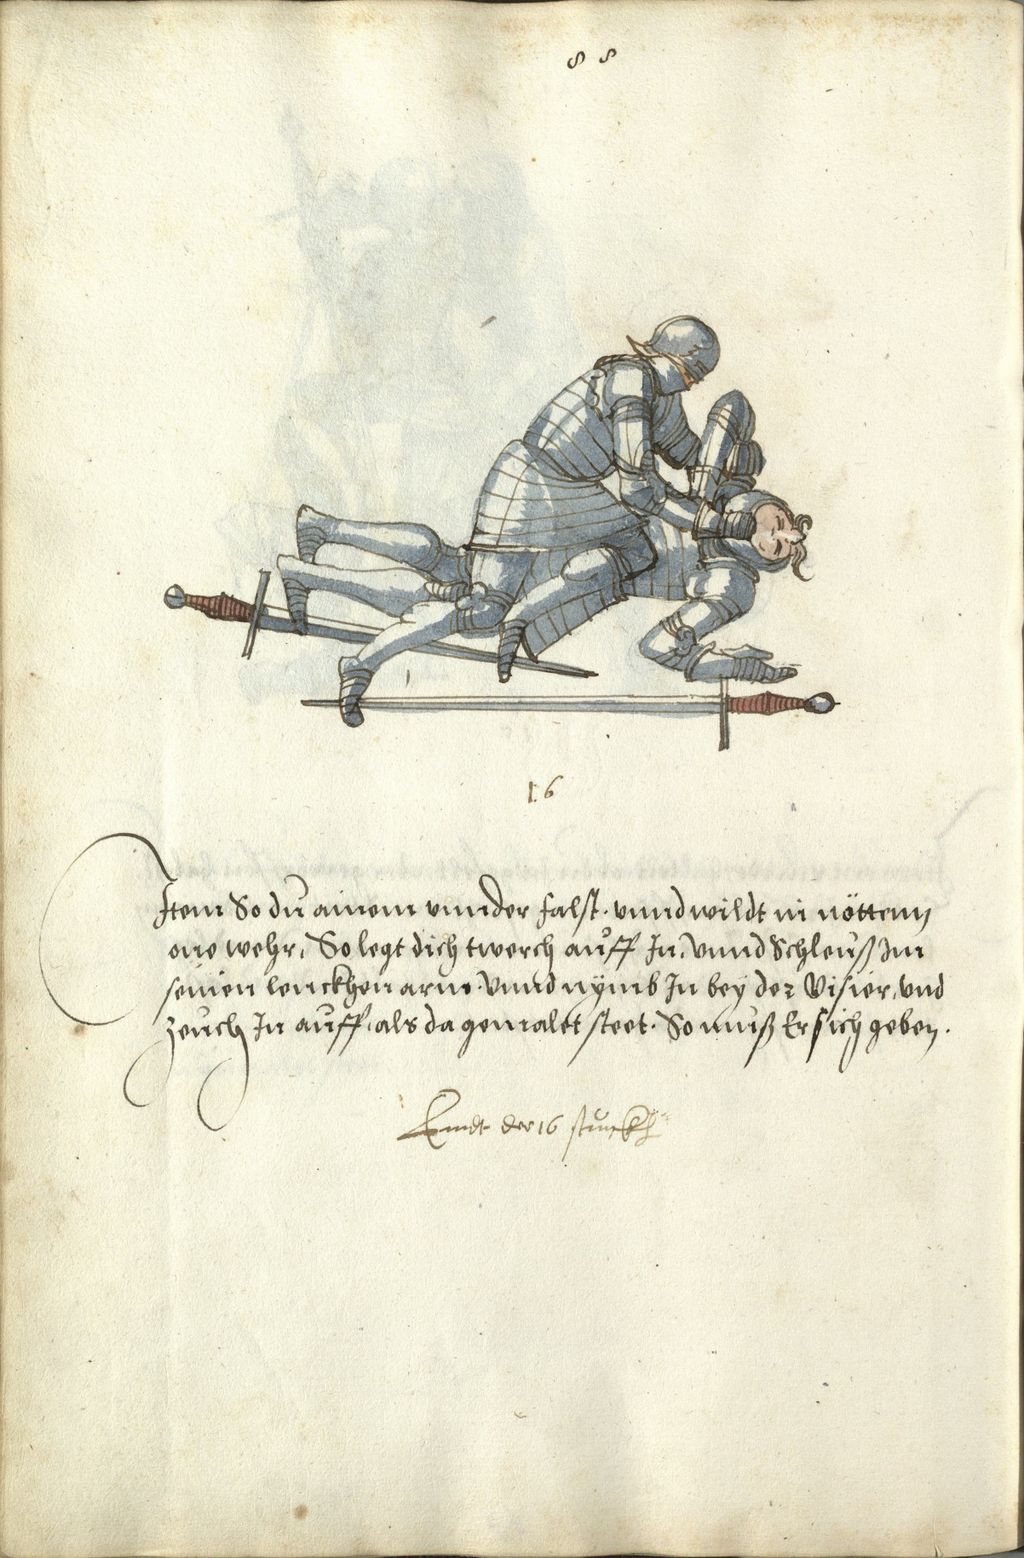 8 8
16
Item So du ainem vnnder falst. vnnd wildt in nötten
one wehr, So legt dich twerch auff In, vnnd Schleuß Im
seinen lenckhen arm. vnnd nÿmb In beÿ der Visier, vnd
zeuch In auff, als da gemalet steet. So muß Er sich geben.
Enndt der 16 stuckh